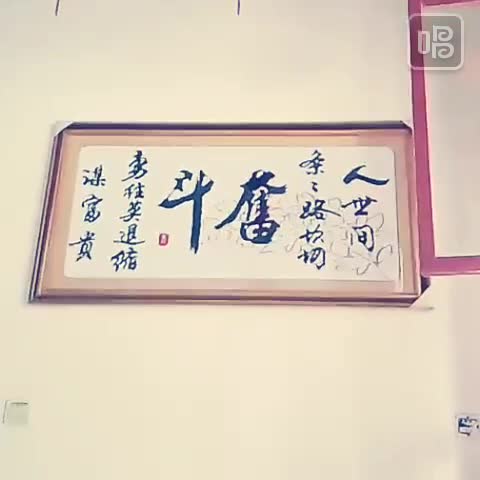 人世间
条条路坎坷
奋斗
勇往莫退缩
谋富贵
唱